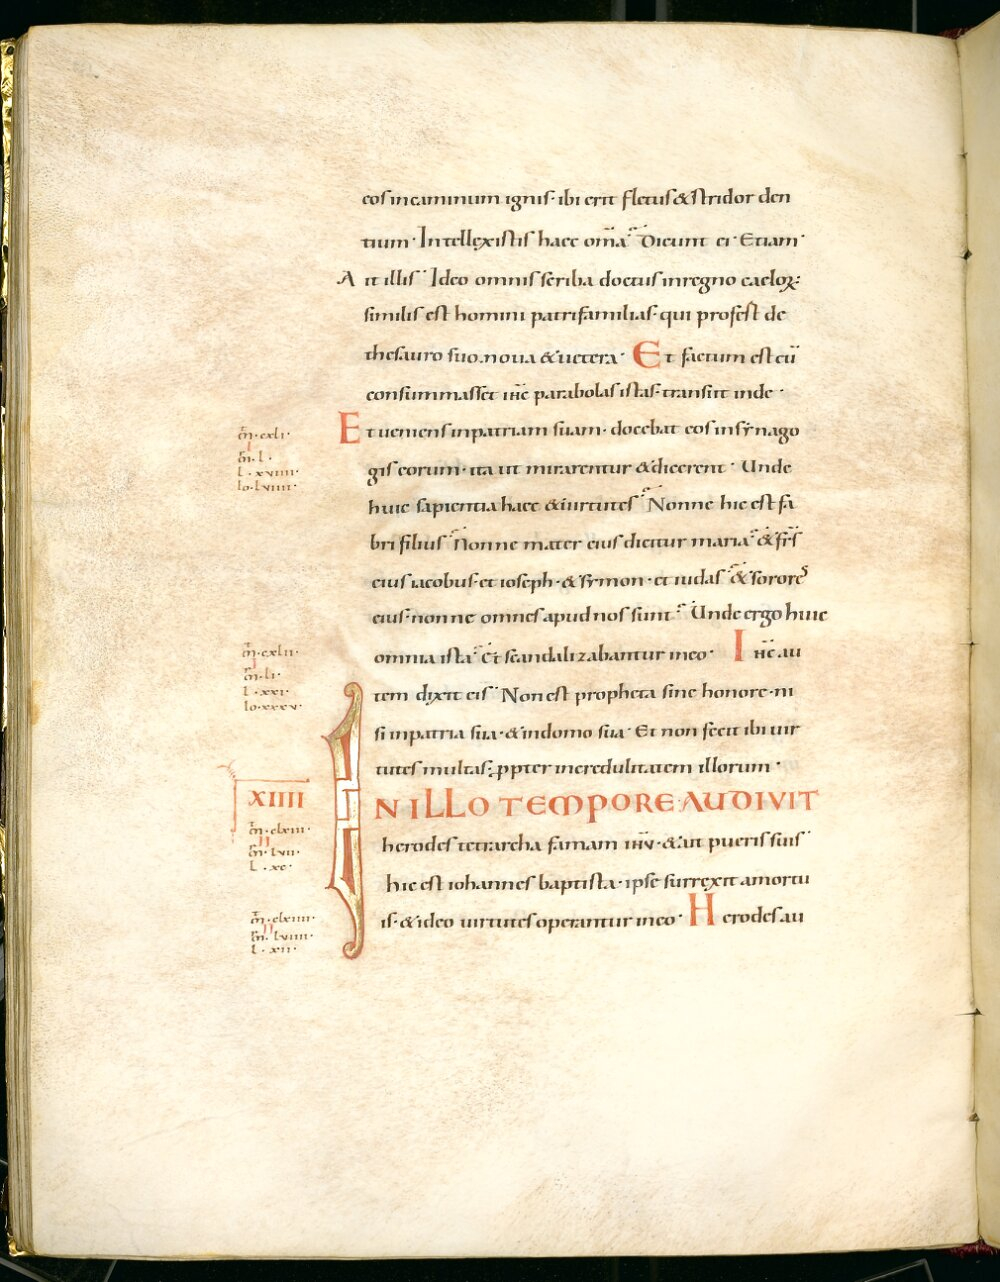 eos incaminum ignis· ibi erit fletus & stridor den
tium· Intellexistis haec om̄a Dicunt ei· Etiam·
Ait illis· Ideo omnis scriba doctus inregno caeloꝝ·
similis est homini patrifamilias· qui profest de
thesauro suo· noua & uetera· Et factum est cū
consummasset ihc̄ parabolas istas· transiit inde·
Et ueniens inpatriam suam· docebat eos insynago
m̄· cxli·
I
m̄r· l·
l· xviiii·
io· lviiii·
gis eorum· ita ut mirarentur & dicerent· Unde
huic sapientia haec & uirtutes Nonne hic est fa
bri filius Nonne mater eius dicitur maria & frs̄
eius iacobus· et ioseph· & symon· et iudas & sorores
eius· nonne omnes apud nos sunt Unde ergo huic
omnia ista Et scandalizabantur in eo· Ihc̄ au
m̄· cxlii·
I
m̄r· li·
l· xxi·
io· xxxv·
tem dixit eis· Non est propheta sine honore· ni
si inpatria sua· & indomo sua· Et non fecit ibi uir
tutes multas· ꝓpter incredulitatem illorum·
XIIII
IN ILLO TEMPORE AUDIVIT
m̄· cxliii·
II
m̄r· lvii·
l· xc·
herodes tetrarcha famam ihū· & ait pueris suis·
hic est iohannes baptista· ipse surrexit amortu
is· & ideo uirtutes operantur in eo· Herodes au
m̄· cxliiii·
II
m̄r· lviiii·
l· xii·